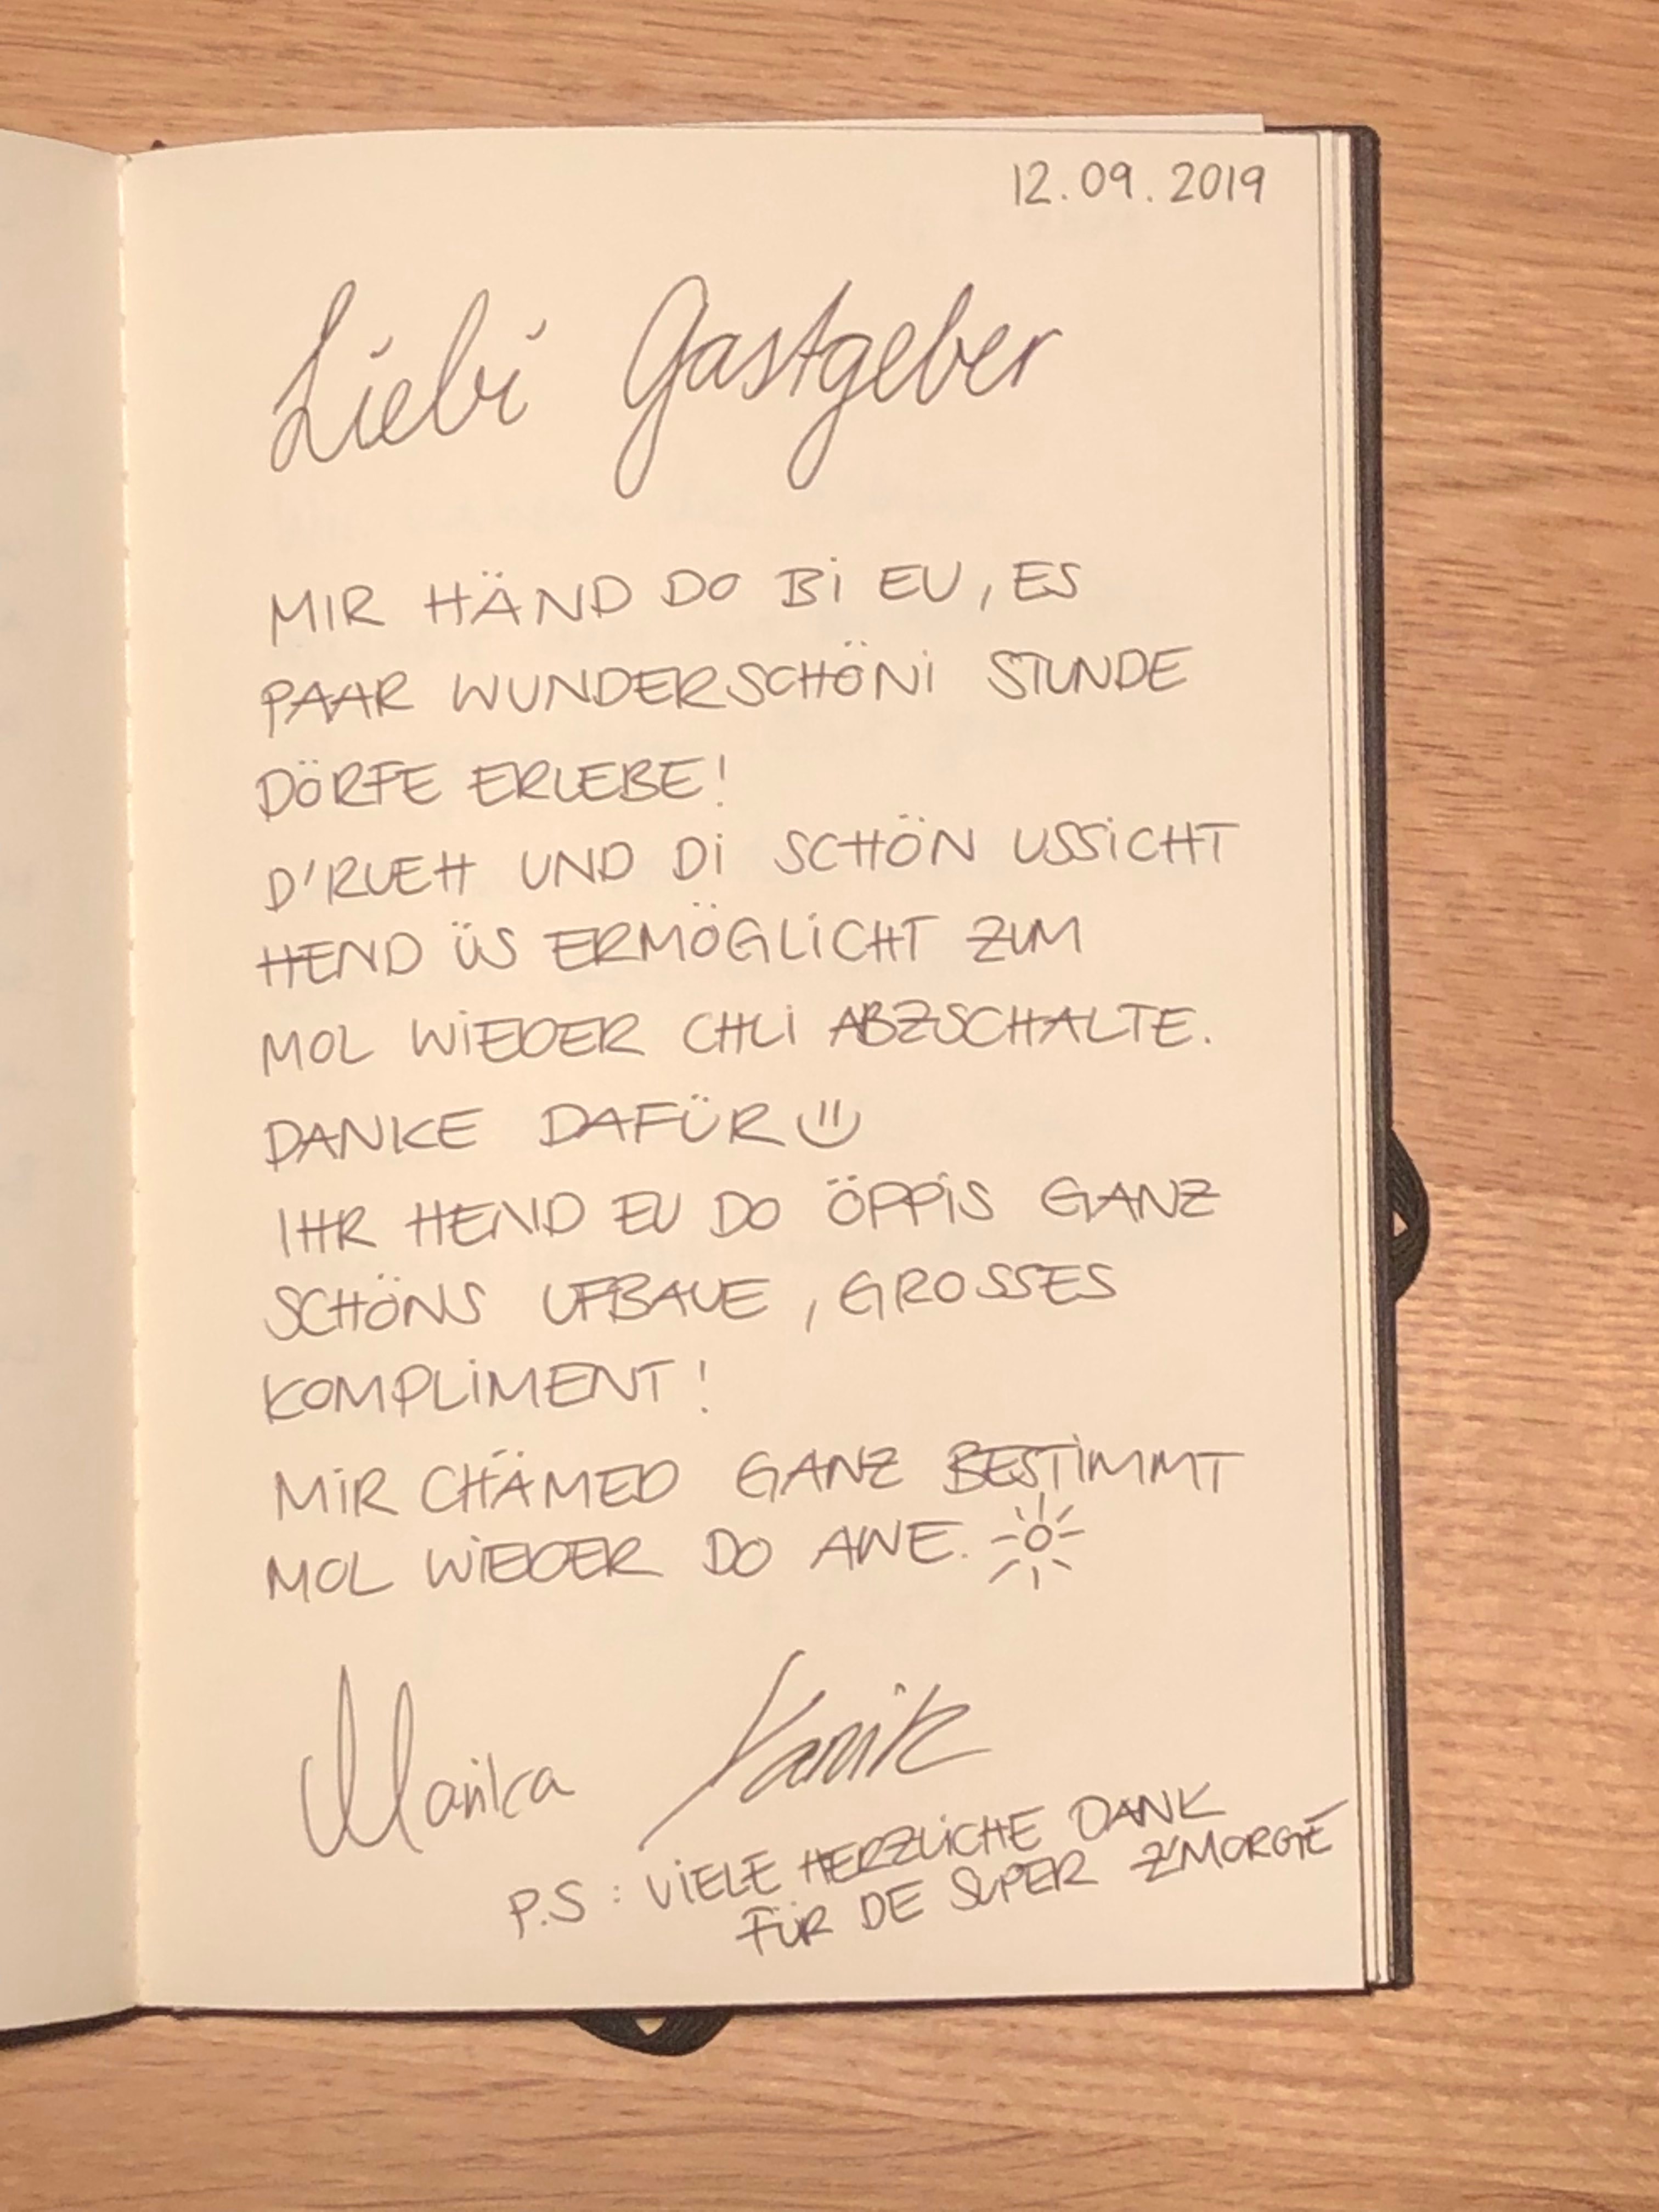 12.09.2019
Liebi Gastgeber
MIR HÄND DO BI EU, ES
PAAR WUNDERSCHÖNI STUNDE
DÖRFE ERLEBE!
D'RUEH UND DI SCHÖN USSICHT
HEND ÜS ERMÖGLICHT ZUM
MOL WIEDER CHLI ABZSCHALTE.
DANKE DAFÜR
IHR HEND EU DO ÖPPIS GANZ
SCHÖNS UFBAUE, GROSSES
KOMPLIMENT!
MIR CHÄMED GANZ BESTIMMT
MOL WIEDER DO ANE.
Yanik
P.S: VIELE HERZLICHE DANK
FÜR DE SUPER Z'MORGE